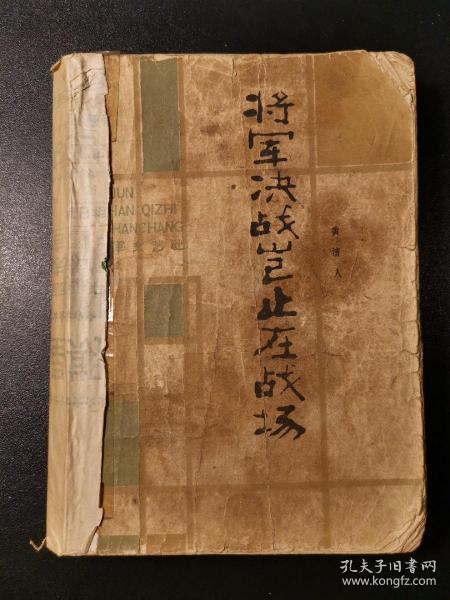 将军决战岂止在战场
黄济人
JUN
HAN QIZHI
HANCHANG
孔夫子旧书网
www.kongfz.com